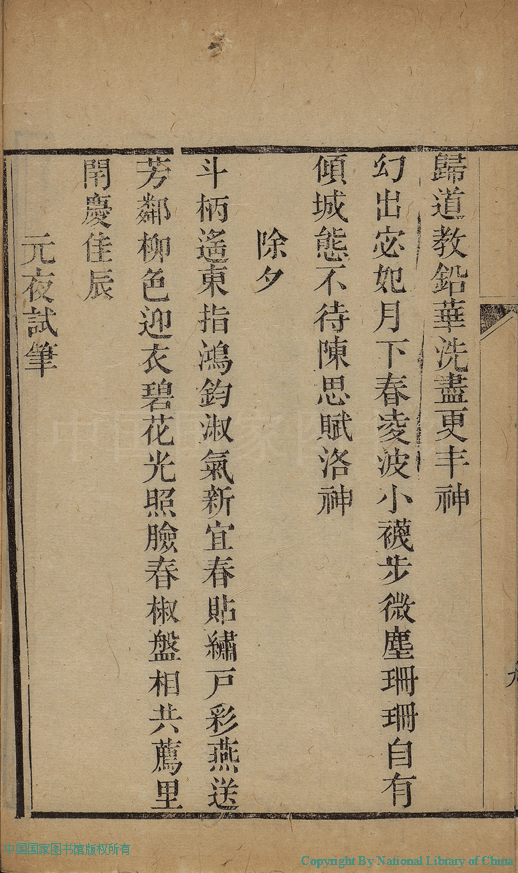 歸道教鉛華洗盡更丰神
幻出宓妃月下春凌波小襪步微塵珊珊自有
傾城態不待陳思賦洛神
除夕
斗柄遙東指鴻鈞淑氣新宜春貼繡戸彩燕送
芳鄰柳色迎衣碧花光照臉春椒盤相共薦里
閈慶佳辰
元夜試筆
中国国家图书馆版权所有
Copyright By National Library of China